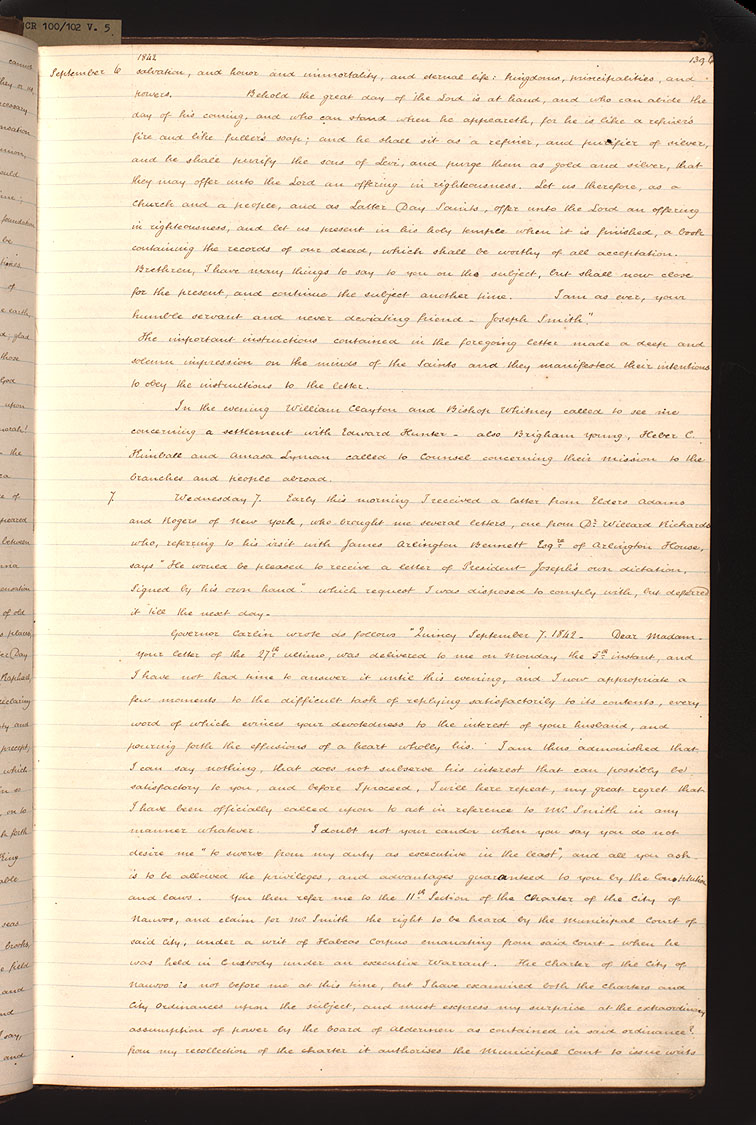 CR 100/102 V. 5
1842
1396
September 6 salvation, and honor and immortality, and eternal life: kingdoms, principalities, and
powers. Behold the great day of the Lord is at hand, and who can abide the
day of his coming, and who can stand when he appeareth, for he is like a refiner's
fire and like fuller's soap; and he shall sit as a refiner, and purifier of silver,
and he shall purify the sons of Levi, and purge them as gold and silver, that
they may offer unto the Lord an offering in righteousness. Let us therefore, as a
church and a people, and as Latter Day Saints, offer unto the Lord an offering
in righteousness, and let us present in his holy temple when it is finished, a book
containing the records of our dead, which shall be worthy of all acceptation.
Brethren, I have many things to say to you on the subject, but shall now close
for the present, and continue the subject another time. I am as ever, your
humble servant and never deviating friend - Joseph Smith".
The important instructions contained in the foregoing letter made a deep and
solemn impression on the minds of the Saints and they manifested their intentions
to obey the instructions to the letter.
In the evening William Clayton and Bishop Whitney called to see me
concerning a settlement with Edward Hunter - also Brigham Young, Heber C.
Kimball and Amasa Lyman called to counsel concerning their mission to the
branches and people abroad.
7. Wednesday 7. Early this morning I received a letter from Elders Adams
and Rogers of New York, who brought me several letters, one from Dr. Willard Richards
who, referring to his visit with James Arlington Bennett Esqre. of Arlington House,
says "He would be pleased to receive a letter of President Joseph's own dictation,
signed by his own hand". which request I was disposed to comply with, but deferred
it till the next day.
Governor Carlin wrote as follows "Quincy September 7. 1842 - Dear Madam -
your letter of the 27th. ultimo, was delivered to me on Monday the 5th. instant, and
I have not had time to answer it until this evening, and I now appropriate a
few moments to the difficult task of replying satisfactorily to its contents, every
word of which evinces your devotedness to the interest of your husband, and
pouring forth the effusions of a heart wholly his. I am thus admonished that
I can say nothing, that does not subserve his interest that can possibly be
satisfactory to you, and before I proceed, I will here repeat, my great regret that
I have been officially called upon to act in reference to Mr. Smith in any
manner whatever. I doubt not your candor when you say you do not
desire me "to swerve from my duty as executive in the least", and all you ask
is to be allowed the privileges, and advantages guaranteed to you by the Constitution
and laws. You then refer me to the 11th. Section of the Charter of the City of
Nauvoo, and claim for Mr. Smith the right to be heard by the Municipal Court of
said city, under a writ of Habeas Corpus emanating from said Court - when he
was held in Custody under an executive Warrant. The Charter of the City of
Nauvoo is not before me at this time, but I have examined both the Charters and
City Ordinances upon the subject, and must express my surprise at the extraordinary
assumption of power by the board of Aldermen as contained in said ordinance!
from my recollection of the charter it authorises the Municipal Court to issue writs